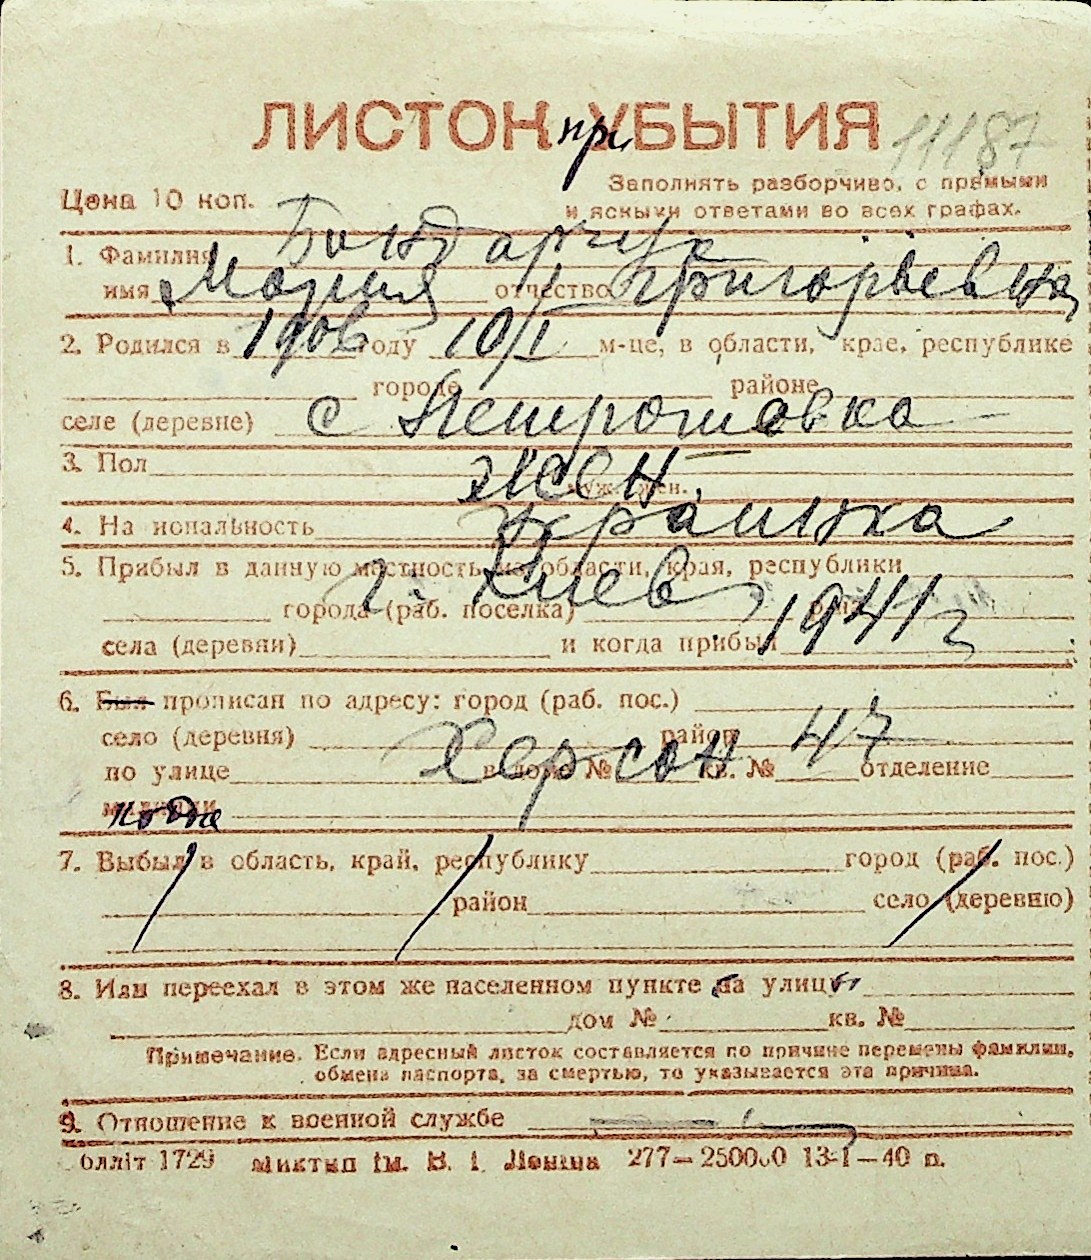 ЛИСТОК при УБЫТИЯ 11187
Цена 10 коп. Заполнять разборчиво, с прямыми
и ясными ответами во всех графах.
1. Фамилия Бондарчук
имя Мария отчество Григорьевна
2. Родился в 1906 году 10/I м-це, в области, крае, республике
городе районе
селе (деревне) с Петрошовка
3. Пол жен.
муж. жен.
4. На нопальность Украинка
5. Прибыл в данную местность из области, края, республики
города (раб. поселка) г. Киев р-на
села (деревни) и когда прибыл 1941 г
6. Был прописан по адресу: город (раб. пос.)
село (деревня) район
по улице Херсон 47 в доме № кв. № отделение
милиции когда
7. Выбыл в область, край, республику город (раб. пос.)
район село (деревню)
8. Или переехал в этом же населенном пункте на улицу
дом № кв. №
Примечание. Если адресный листок составляется по причине перемены фамилии,
обмена паспорта, за смертью, то указывается эта причина.
9. Отношение к военной службе
блліт 1729 Миктип ім. В. І. Леніна 277—250000 13-I—40 п.